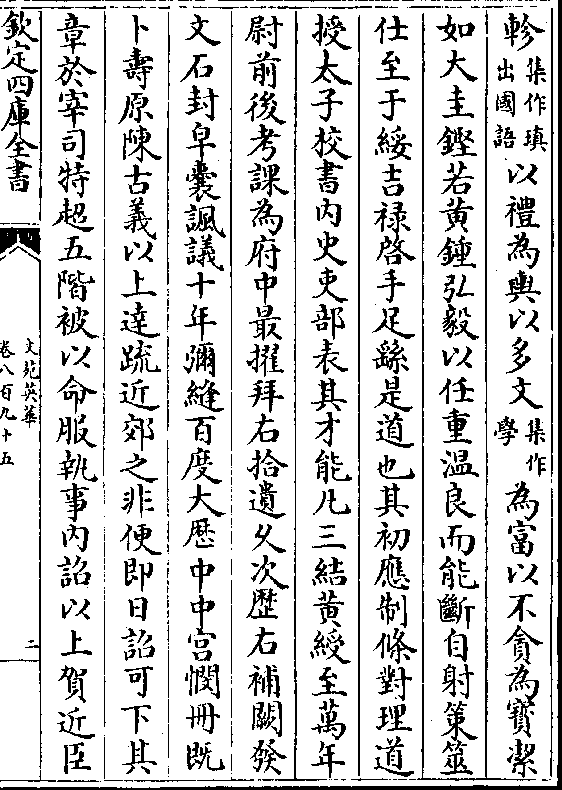 軫集作瑱出國語以禮為輿以多文集作學為富以不貪為寶潔
如大圭鏗若黃鍾弘毅以任重溫良而能斷自射策筮
仕至于綏吉祿啓手足繇是道也其初應制條對理道
授太子校書內史吏部表其才能凡三結黃綬至萬年
尉前後考課為府中最擢拜右拾遺乆次歷右補闕發
文石封皁囊諷議十年彌縫百度大歷中中宮憫冊既
卜壽原陳古義以上達䟽近郊之非便即日詔可下其
章於宰司特超五階被以命服執事內詔以上賀近臣
欽定四庫全書
文苑英華
卷八百九十五
二